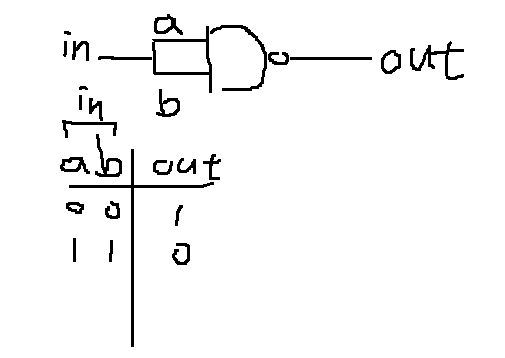 a
in out
b
in
a b out
0 0 1
1 1 0